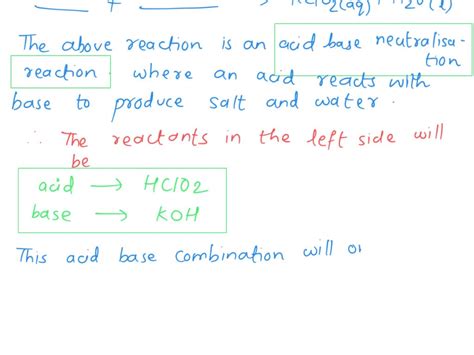 + → KClO2(aq) + H2O(l)
The above reaction is an acid base neutralisa-
tion
reaction. where an acid reacts with
base to produce salt and water.
∴ The reactants in the left side will
be
acid → HClO2
base → KOH
This acid base combination will